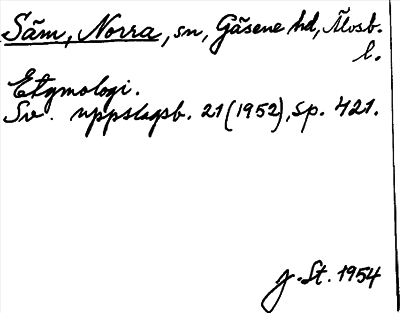 Säm, Norra, sn, Gäsene hd, Älvsb.
l.
Etymologi.
Sv. uppslagsb. 21 (1952), sp. 421.
J. St. 1954